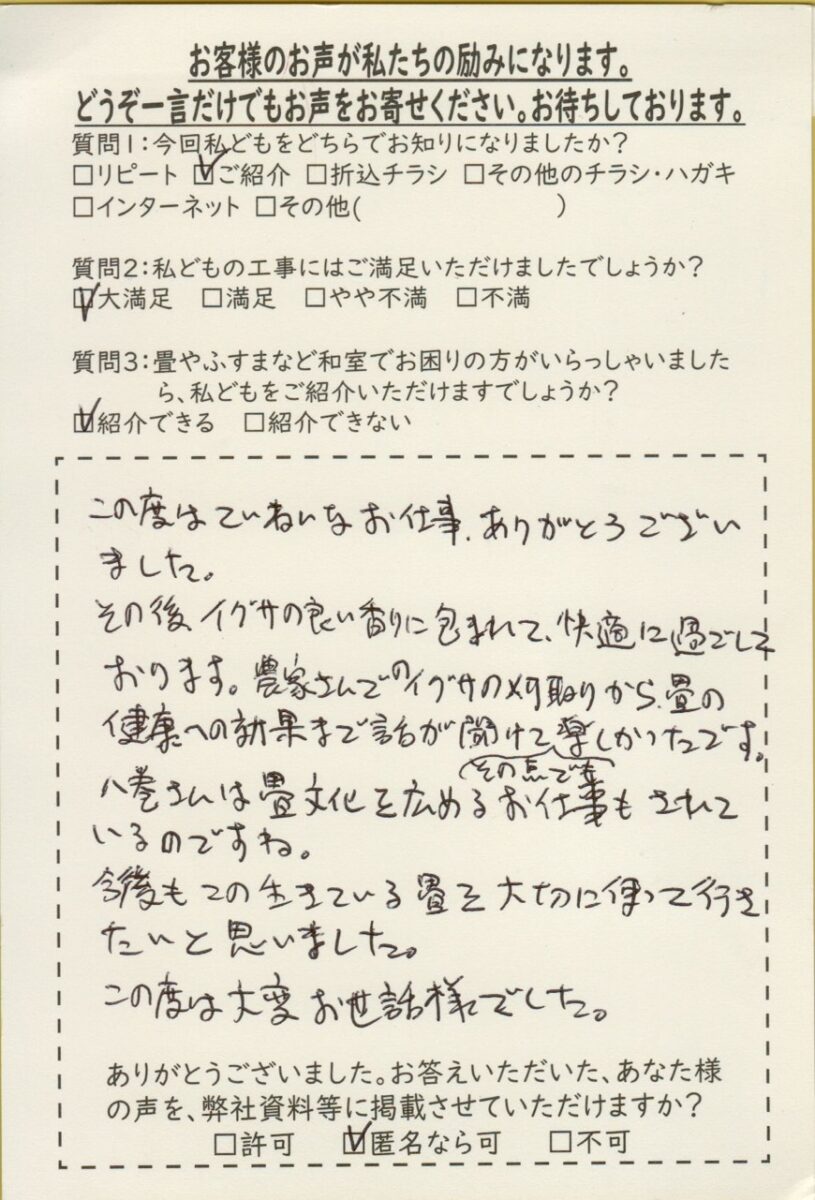 お客様のお声が私たちの励みになります。
どうぞ一言だけでもお声をお寄せください。お待ちしております。
質問1:今回私どもをどちらでお知りになりましたか?
□リピート ☑ご紹介 □折込チラシ □その他のチラシ・ハガキ
□インターネット □その他( )
質問2:私どもの工事にはご満足いただけましたでしょうか?
☑大満足 □満足 □やや不満 □不満
質問3:畳やふすまなど和室でお困りの方がいらっしゃいました
ら、私どもをご紹介いただけますでしょうか?
☑紹介できる □紹介できない
この度はていねいなお仕事、ありがとうござい
ました。
その後、イグサの良い香りに包まれて、快適に過ごして
おります。農家さんでのイグサの刈取りから、畳の
健康への効果まで話が聞けて、楽しかったです。
(その点でも)
八巻さんは畳文化を広めるお仕事もされて
いるのですね。
今後もこの生きている畳を大切に使って行き
たいと思いました。
この度は大変お世話様でした。
ありがとうございました。お答えいただいた、あなた様
の声を、弊社資料等に掲載させていただけますか?
□許可 ☑匿名なら可 □不可